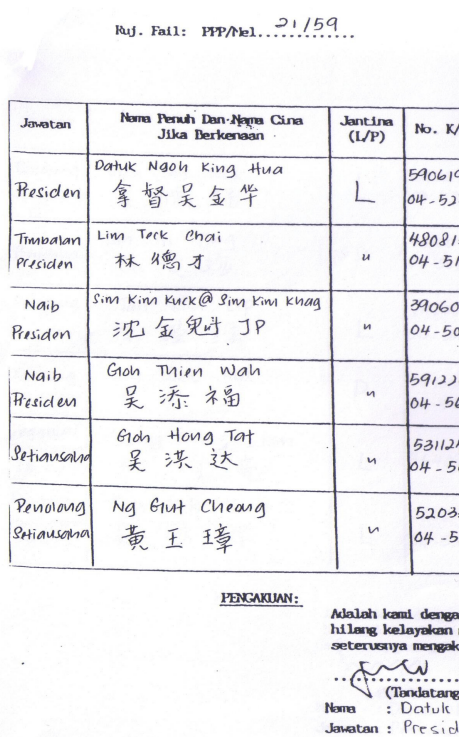 Ruj. Fail: PPP/Mel. 21/59
Jawatan
Nama Penuh Dan Nama Cina
Jika Berkenaan
Jantina
(L/P)
No. K/
Presiden
Datuk Ngoh King Hua
拿督吴金华
L
590619
04-52
Timbalan
Presiden
Lim Teck Chai
林德才
"
48081
04-51
Naib
Presiden
Sim Kim Kuck@ Sim Kim Khag
沈金 JP
"
39060
04-50
Naib
Presiden
Goh Thien Wah
吴添福
"
59122
04-56
Setiausaha
Goh Hong Tat
吴洪达
"
53112
04-5
Penolong
Setiausaha
Ng Giut Cheong
黄玉璋
"
5203
04-5
PENGAKUAN:
Adalah kami denga
hilang kelayakan
seterusnya mengak
(Tandatang
Nama : Datuk
Jawatan : Presid